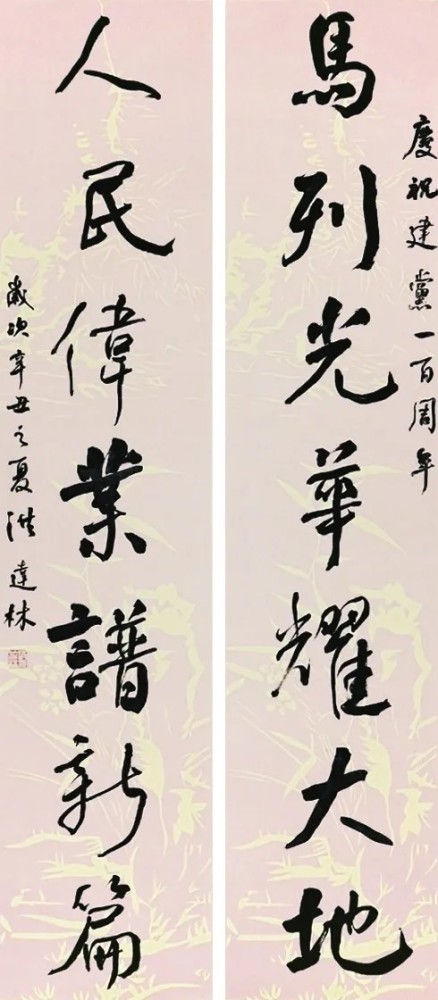 慶祝建黨一百周年
馬列光華耀大地
人民偉業譜新篇
歲次辛丑之夏洪達林